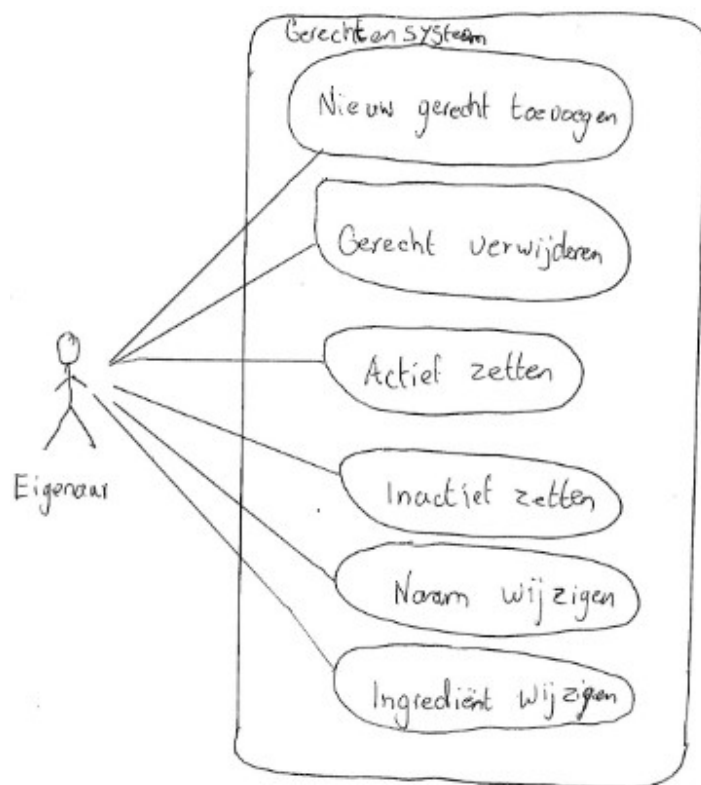 Gerechtensysteem
Nieuw gerecht toevoegen
Gerecht verwijderen
Actief zetten
Inactief zetten
Naam wijzigen
Ingrediënt wijzigen
Eigenaar